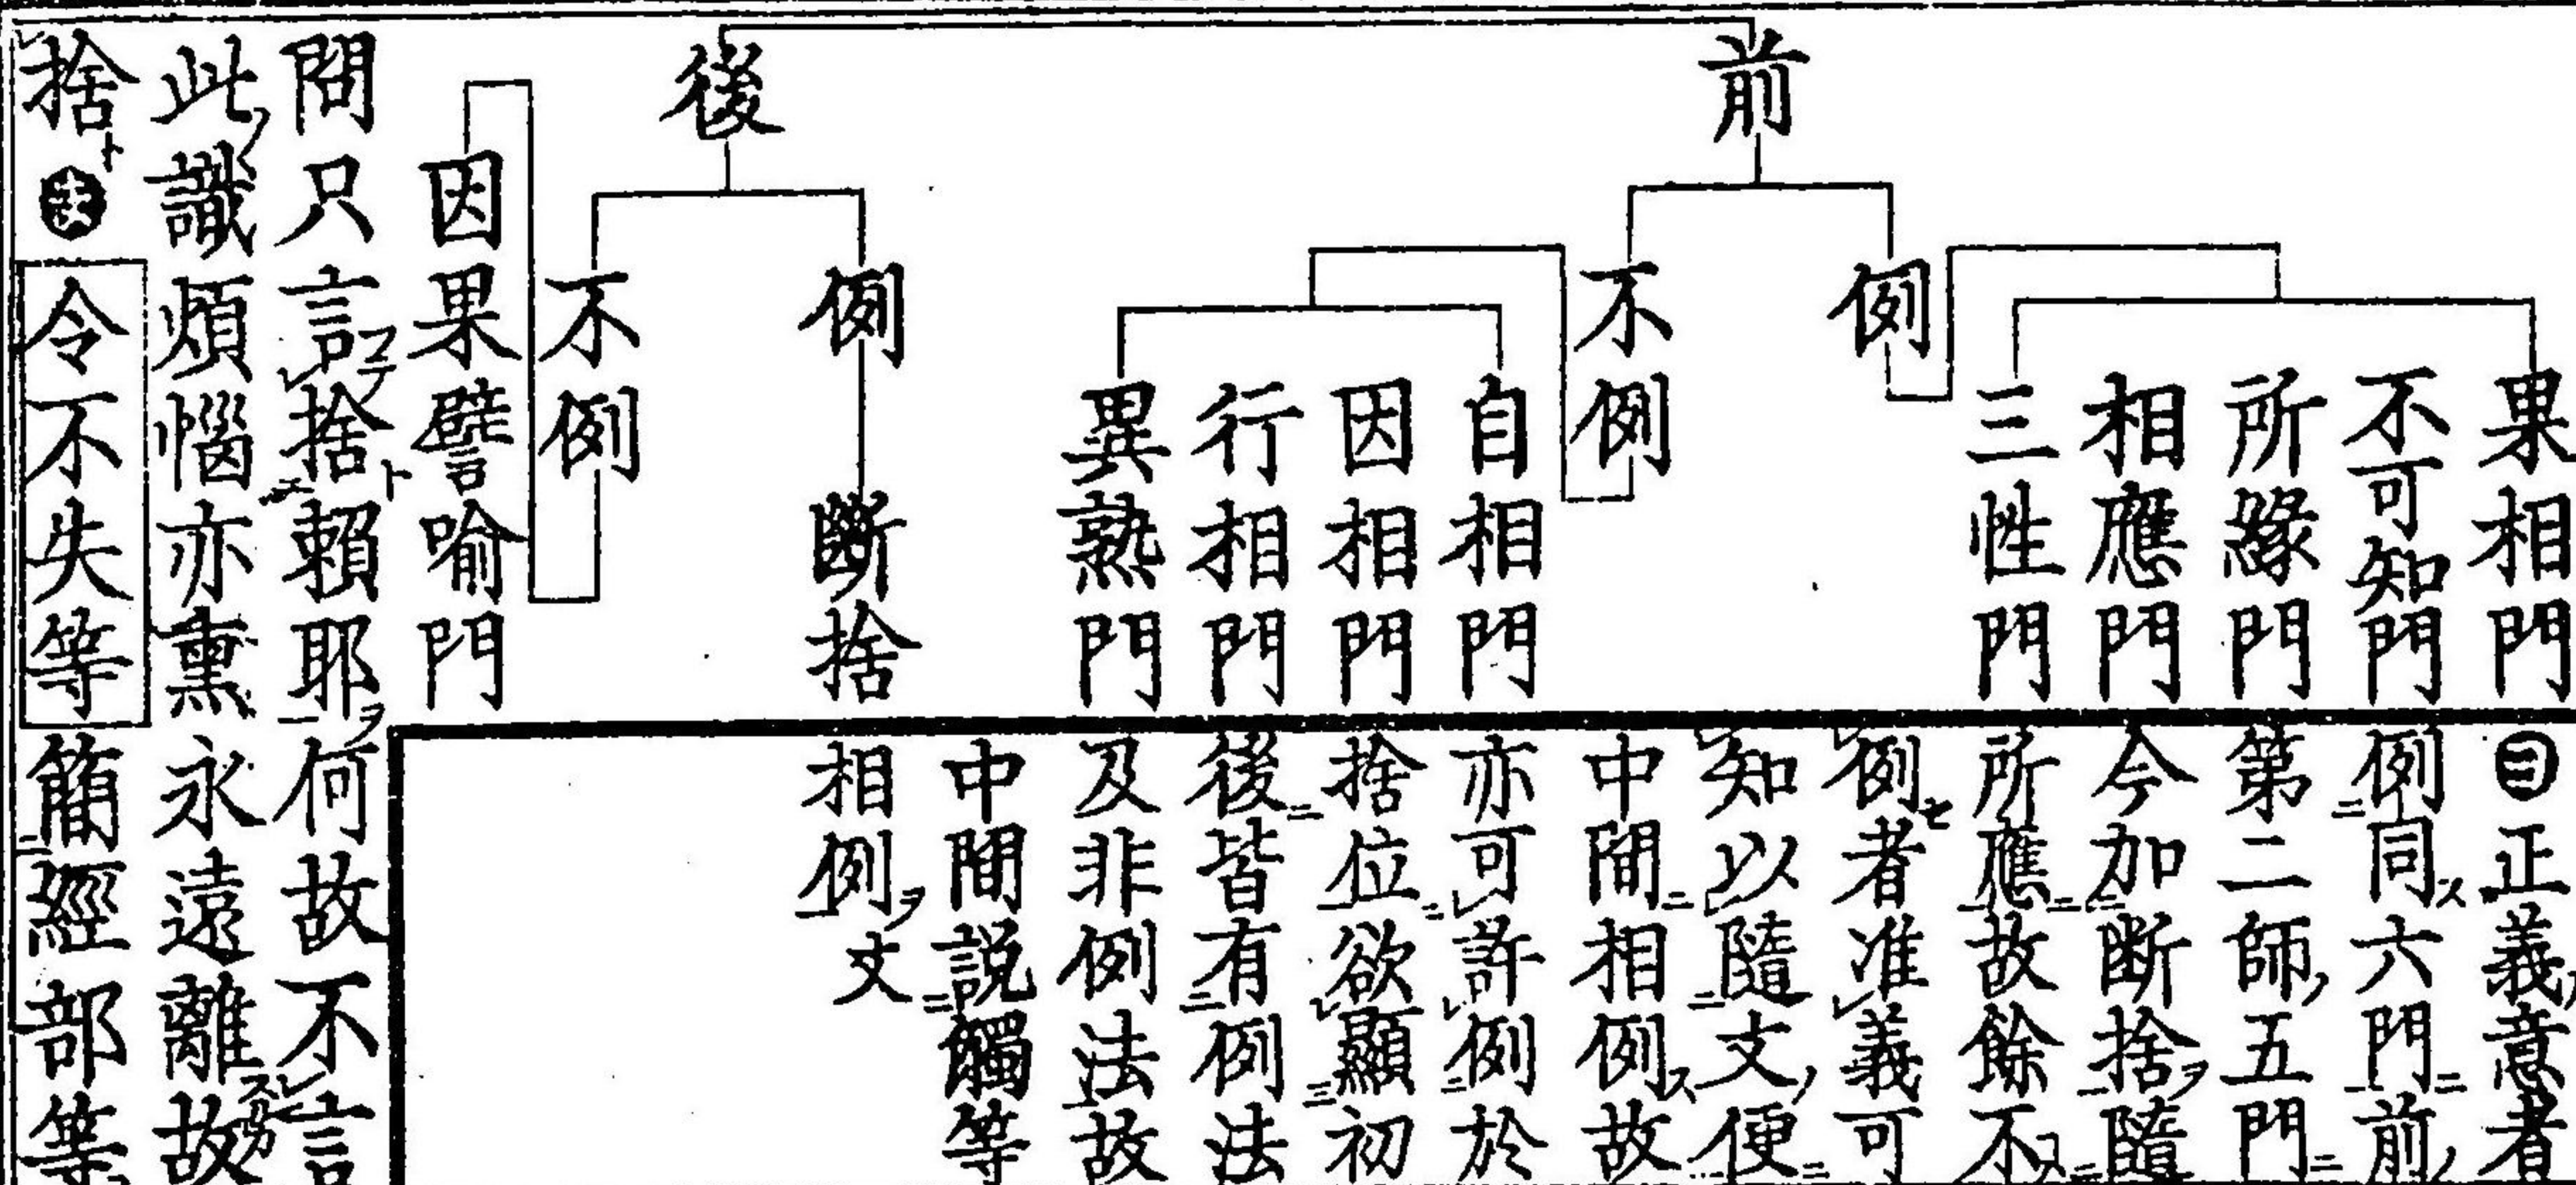 前
例
果相門
不可知門
所緣門
相應門
三性門
不例
自相門
因相門
行相門
異熟門
後
例
斷捨
不例
因果譬喻門
正義意者
例同六門前
第二師五門
今加断捨隨
所應故餘不
例者准義可
知以隨文便
中間相例故
亦可許例於
捨位欲顯初
後皆有例法
及非例法故
中間説觸等
相例文
問只言捨賴耶何故不言
此識煩惱亦熏永遠離故
捨
令不失等簡經部等